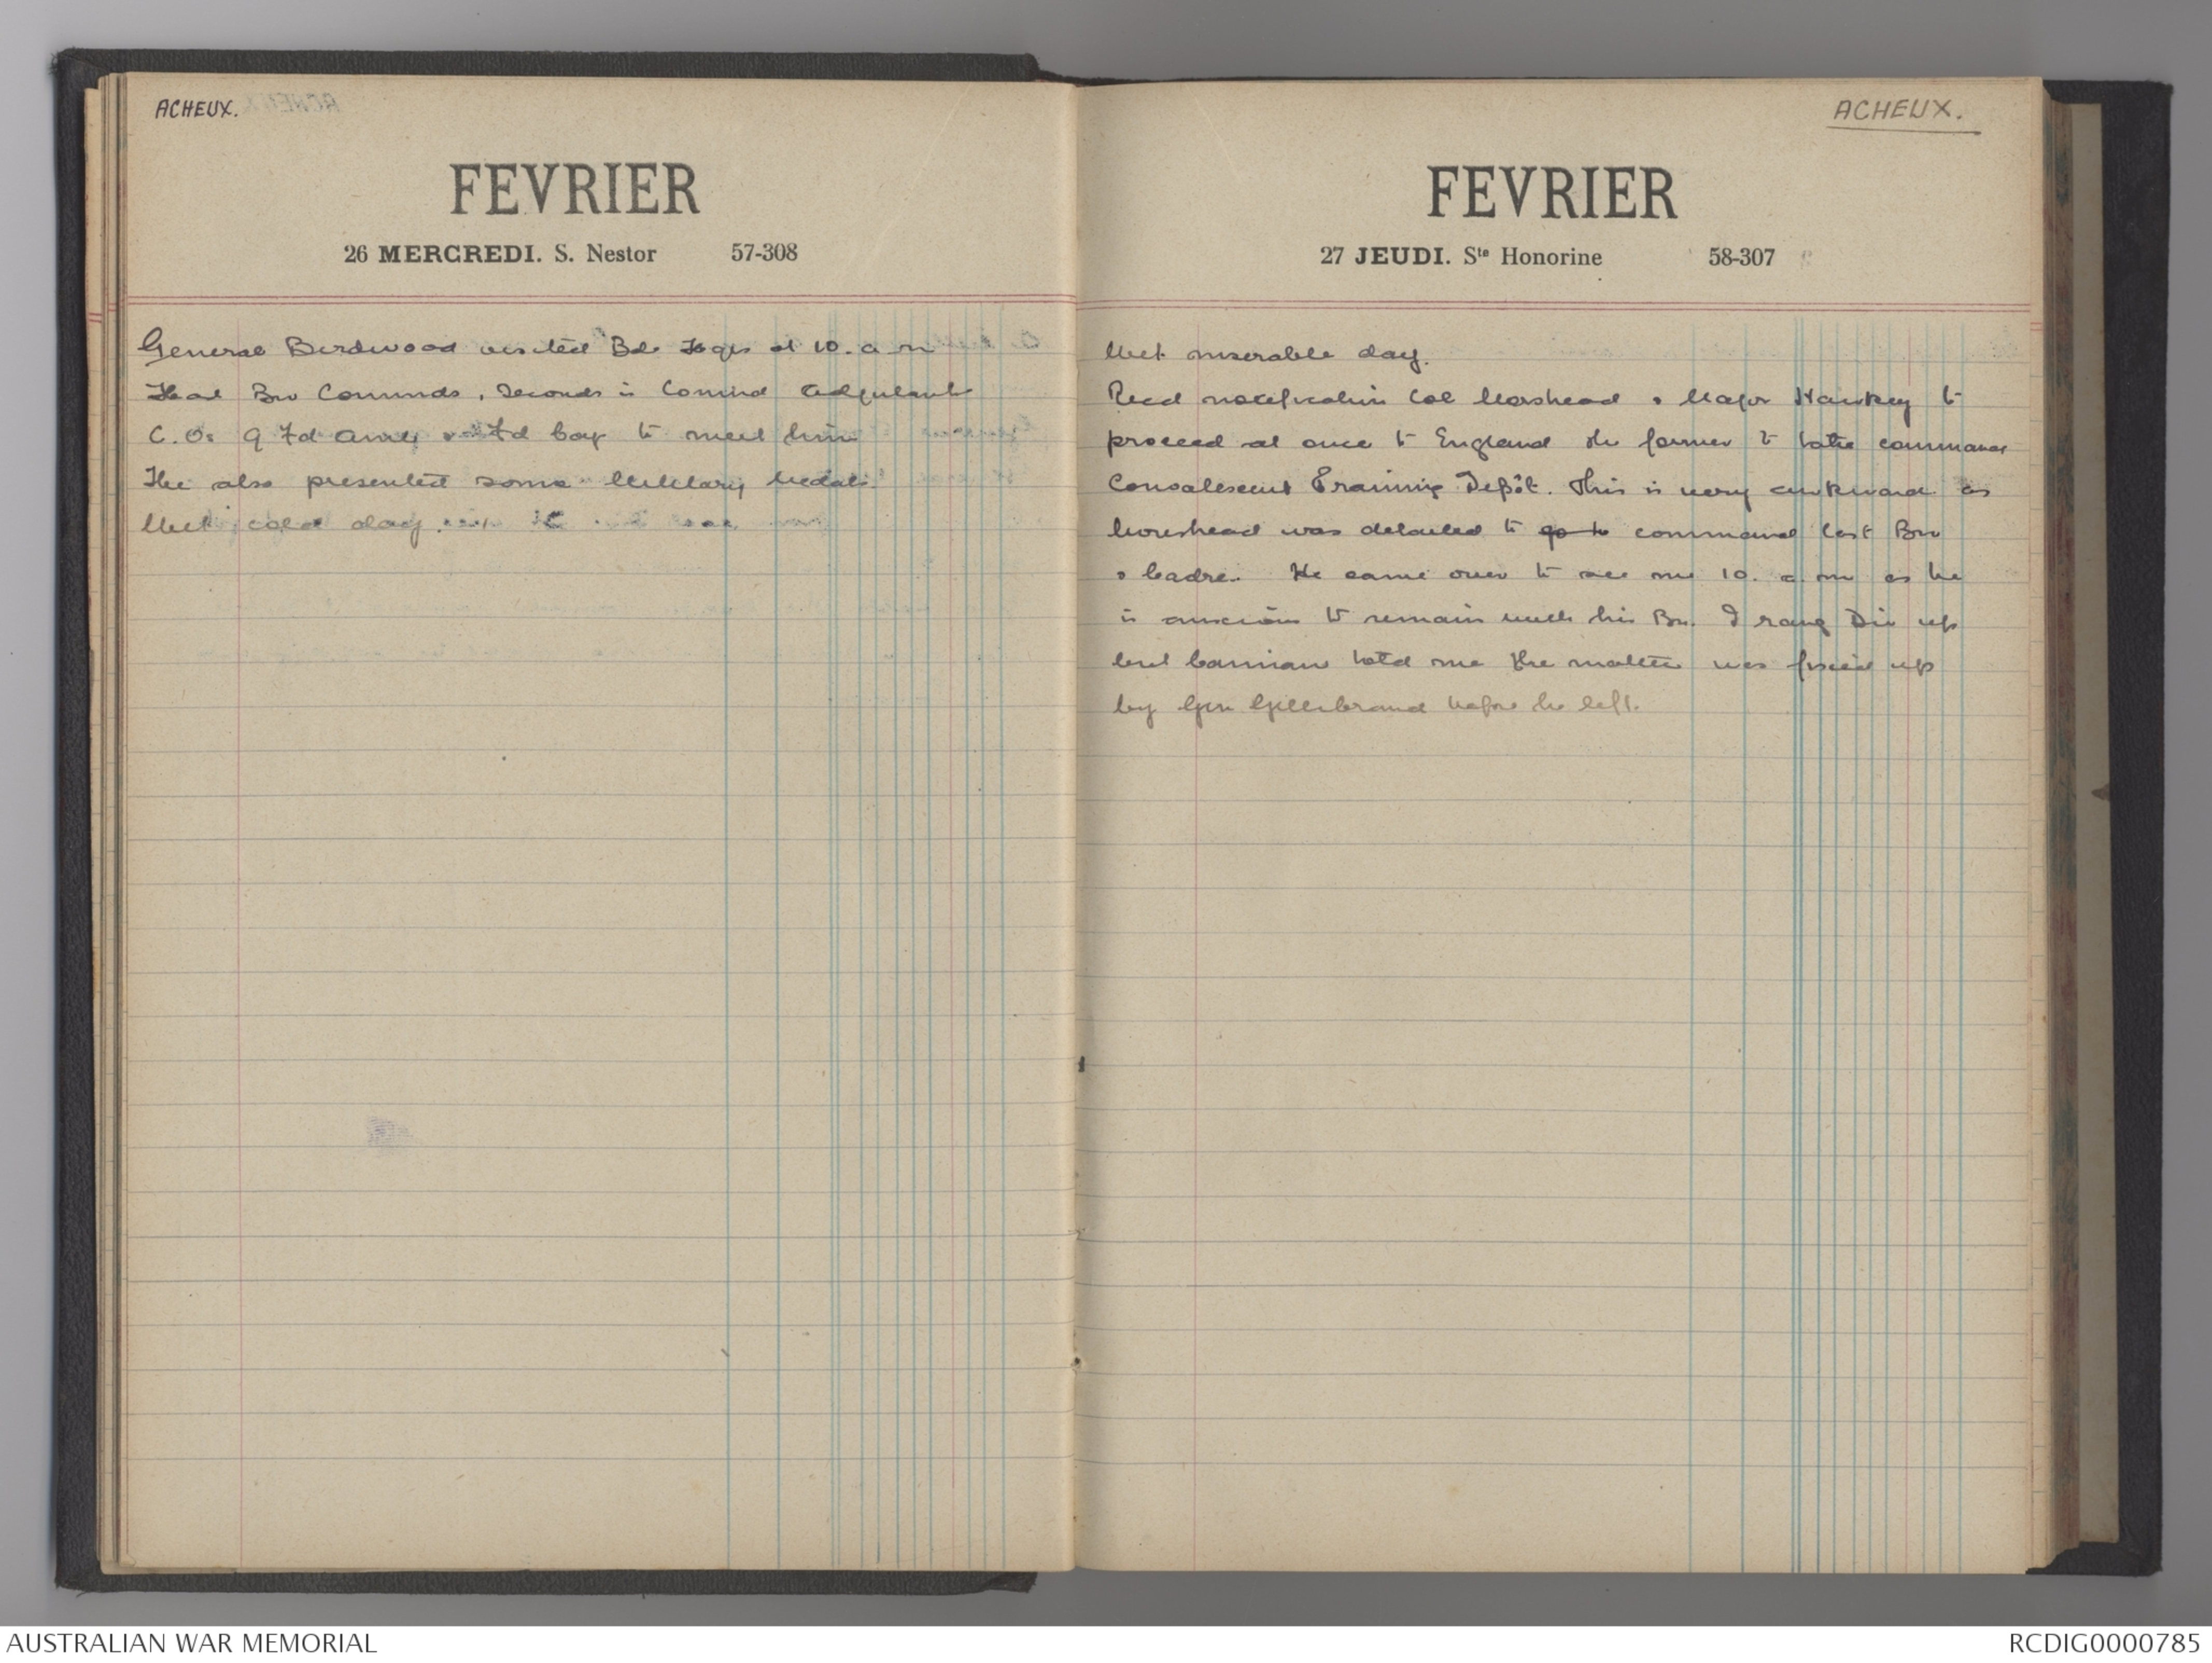 ACHEUX.
FEVRIER
26 MERCREDI. S. Nestor 57-308
General Birdwood visited Bde Hqrs at 10. a m
Had Bn Commds, Seconds in Commd Adjutants
C. Os 9 Fd Amb & Fd Coy to meet him
He also presented some Military Medals.
Wet cold day.
ACHEUX.
FEVRIER
27 JEUDI. Ste Honorine 58-307
Wet miserable day.
Recd notification Col Morshead & Major Hankey to
proceed at once to England the former to take command
Convalescent Training Depôt. This is very awkward as
Morshead was detailed to go to command last Bn
& Cadre. He came over to see me 10. a m as he
is anxious to remain with his Bn. I rang Div up
but told me the matter was fixed up
by Gen Gellibrand before he left.
AUSTRALIAN WAR MEMORIAL
RCDIG0000785